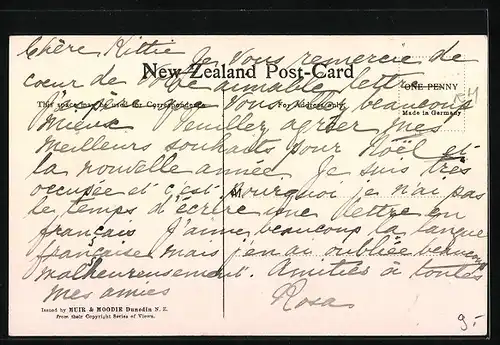 Chère Kittie Je vous remercie de
New Zealand Post-Card
coeur de votre aimable lettre
ONE PENNY
This space may be used for Correspondence.
For Address only.
Made in Germany
J'espère que vous allez beaucoup
mieux Veuillez agréer mes
meilleurs souhaits pour Noël et
la nouvelle année. Je suis très
occupée et c'est pourquoi je n'ai pas
M
le temps d'écrire une lettre en
français J'aime beaucoup la langue
française mais j'en ai oubliée beaucoup
malheureusement. Amitiés à toutes
mes amies Rosa
Issued by MUIR & MOODIE Dunedin N. Z.
From their Copyright Series of Views.
9.-